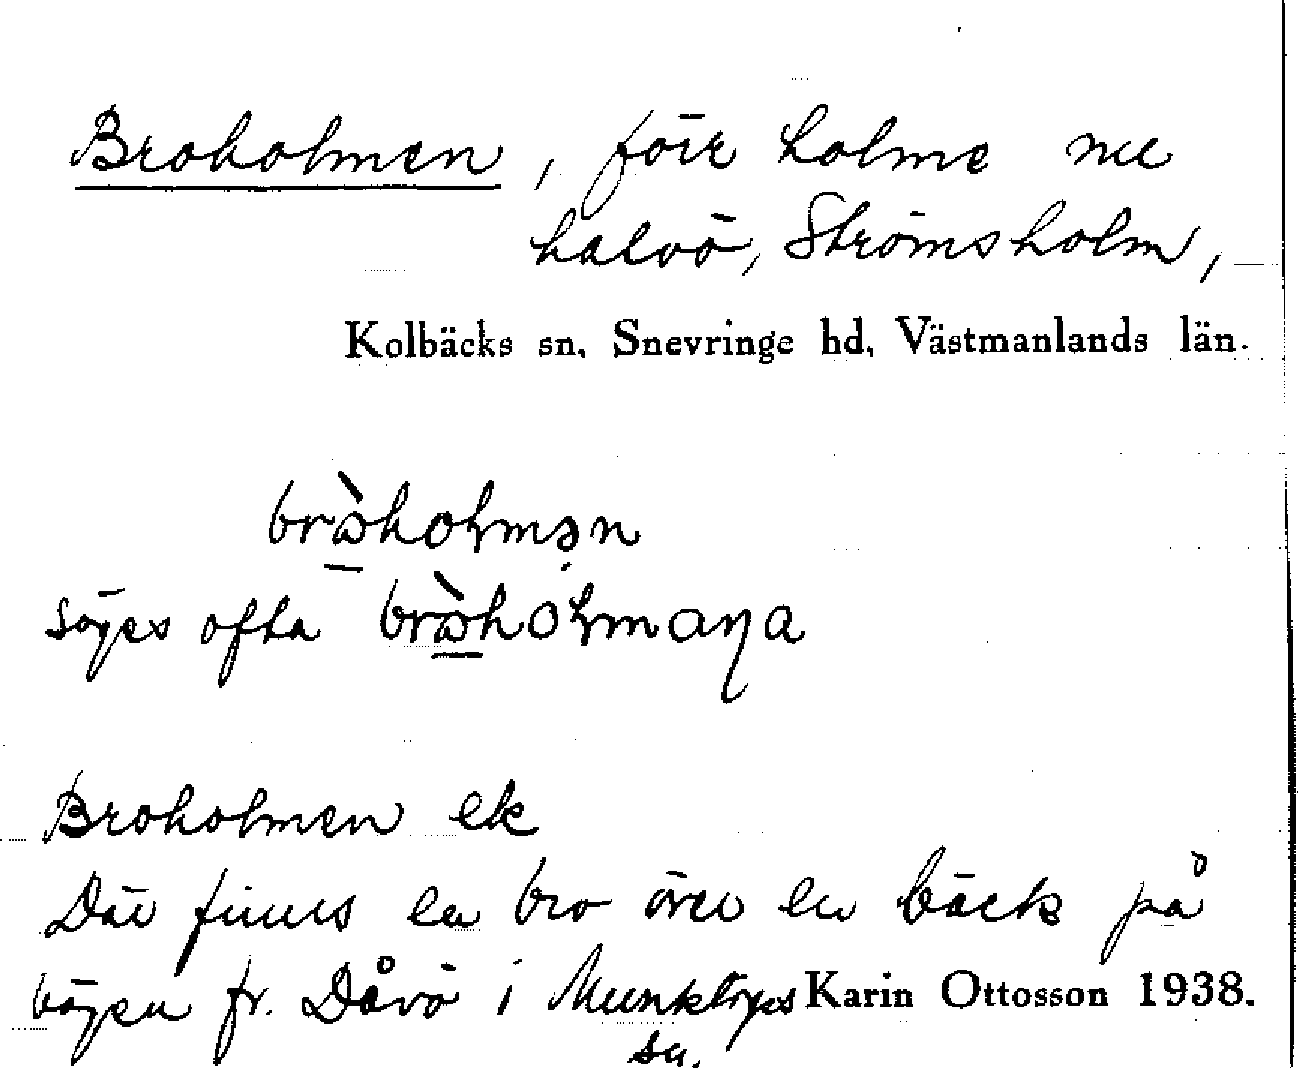 Broholmen, förr holme nu
halvö, Strömsholm,
Kolbäcks sn, Snevringe hd, Västmanlands län.
säges ofta
Broholmen ek
Där finns en bro över en bäck på
vägen fr. Dåvö i Munktorps Karin Ottosson 1938.
sn.